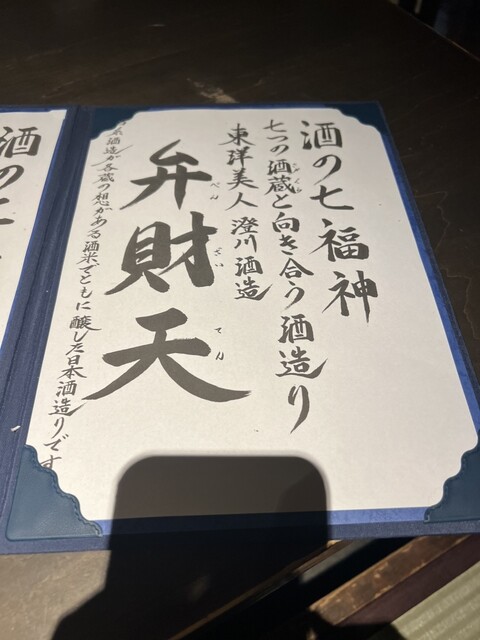 酒の七福神
七つの酒蔵と向き合う酒造り
東洋美人 澄川酒造
弁財天
べん ざい てん
酒造が各蔵の想がある酒米でともに醸した日本酒造りです
酒の